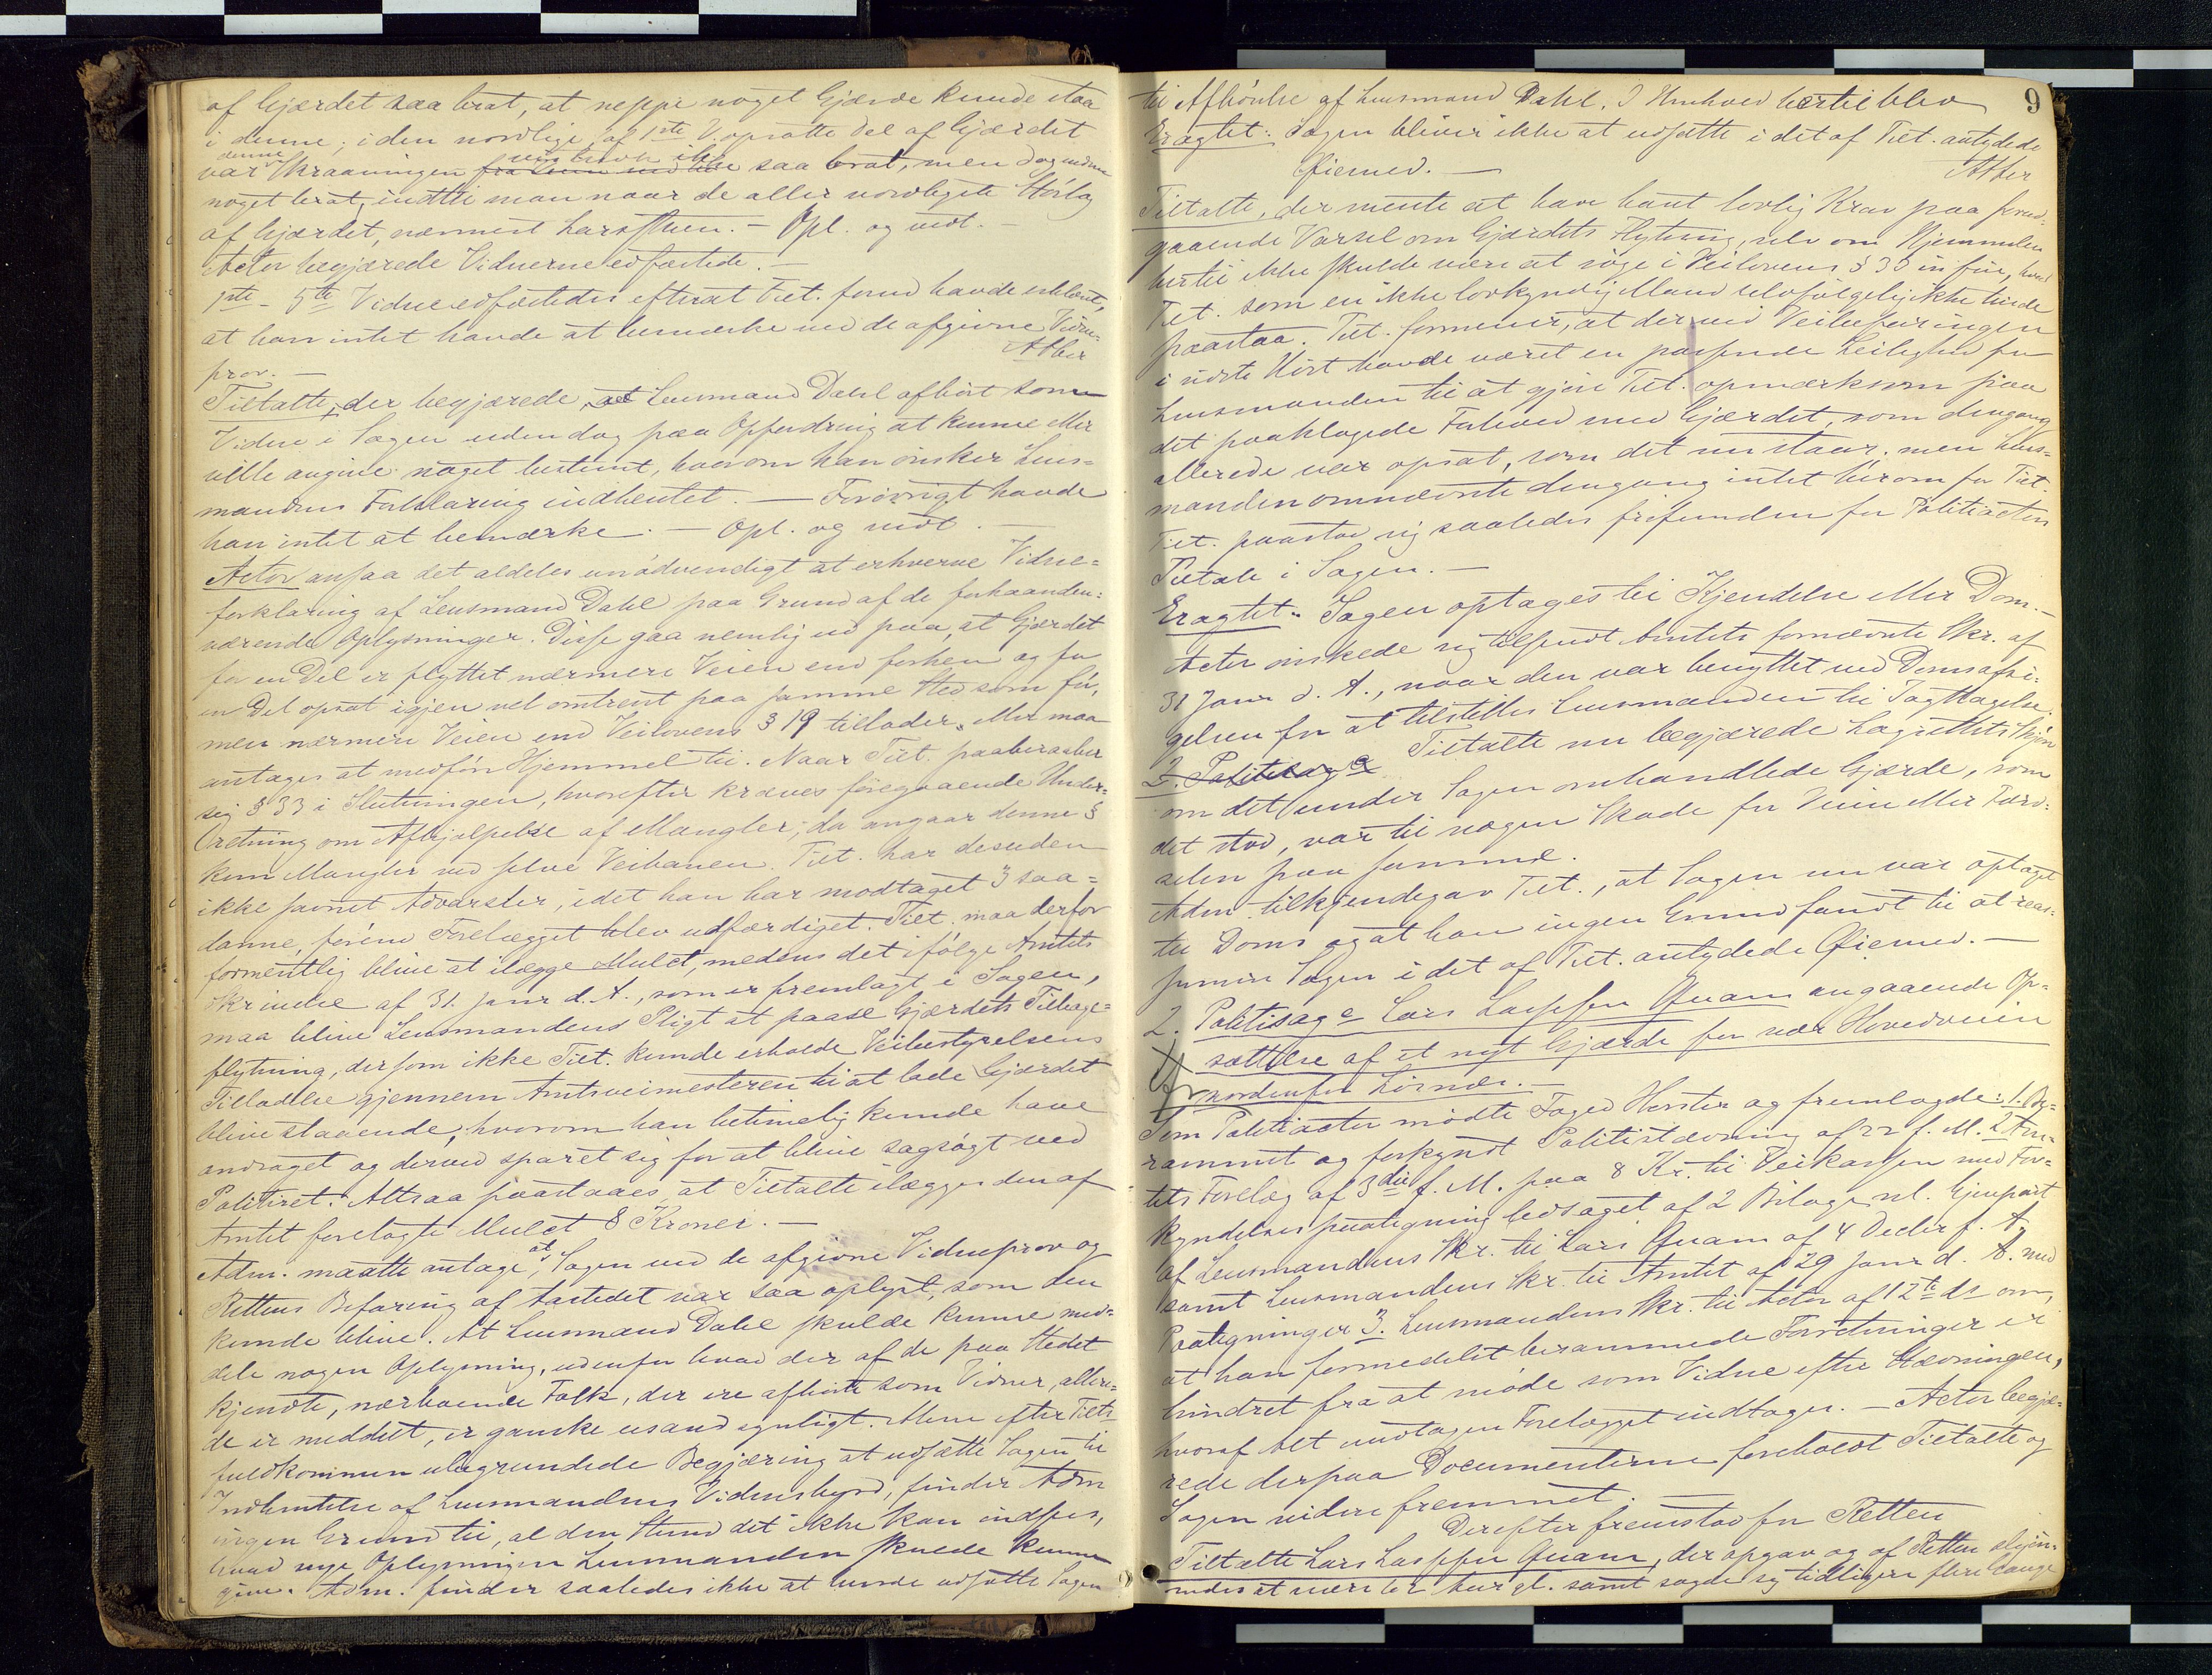 af Gjærdet saa brat, at neppe noget Gjærde kunde staa
i denne; i den nordlige, af 1ste V. opsatte Del af Gjærdet
denne
var Skraaningen saa brat, men dog endnu
noget brat, indtil man naar de aller nordligste
af Gjærdet, nærmest. – Opl. og vedt. –
Actor begjærede Vidnerne edfæstede. –
1ste – 5te Vidne edfæstedes efterat Tilt. forud havde erklæret,
at han intet havde at bemærke ved de afgivne Vidne-
prov. – Atter
Tiltalte, der begjærede Lensmand Dahl afhørt som
Vidne i Sagen uden dog paa Opfordring at kunne eller
ville angive noget bestemt, hvorom han ønsker Lens-
mandens Forklaring indhentet. – Forøvrigt havde
han intet at bemærke. – Opl. og vedt. –
Actor ansaa det aldeles unødvendigt at erhverve Vidne-
forklaring af Lensmand Dahl paa Grund af de forhaanden-
værende Oplysninger. Disse gaa nemlig ud paa, at Gjærdet
for en Del er flyttet nærmere Veien end forhen og for
en Del opsat igjen vel omtrent paa samme Sted som før,
men nærmere Veien end Veilovens § 19 tillader eller maa
antages at medføre Hjemmel til. Naar Tilt. paaberaaber
sig § 33 i Slutningen, hvorefter kræves foregaaende Under-
retning om Afhjælpelse af Mangler, da angaar denne §
kun Mangler ved selve Veibanen. Tilt. har desuden
ikke savnet Advarsler, idet han har modtaget 3 saa-
danne, førend Forelægget blev udfærdiget. Tilt. maa derfor
formentlig blive at ilægge Mulct, medens det ifølge Amtets
Skrivelse af 31. Janr d. A., som er fremlagt i Sagen,
maa blive Lensmandens Pligt at paase Gjærdets Tilbage-
flytning, dersom ikke Tilt. kunde erholde Veibestyrelsens
Tilladelse gjennem Amtsveimesteren til at lade Gjærdet
blive staaende, hvorom han betimelig kunde have
andraget og derved sparet sig for at blive sagsøgt ved
Politiret. Altsaa paastaaes, at Tiltalte ilægges den af
Amtet forelagte Mulct 8 Kroner. –
Adm. maatte antage, at Sagen ved de afgivne Vidneprov og
Rettens Befaring af Aastedet var saa oplyst, som den
kunde blive. At Lensmand Dahl skulde kunne med-
dele nogen Oplysning, udenfor hvad der af de paa Stedet
kjendte, nærboende Folk, der ere afhørte som Vidner, aller-
de er meddelt, er ganske usandsynligt. Men efter Tilts
fuldkommen ubegrundede Begjæring at udsætte Sagen til
Indhentelse af Lensmandens Vidnesbyrd, finder Adm
ingen Grund til, al den Stund det ikke kan indsees,
hvad nye Oplysninger Lensmanden skulde kunne
give. Adm. finder saaledes ikke at burde udsætte Sagen
9
til Afhørelse af Lensmand Dahl. I Henhold hertil blev
Eragtet: Sagen bliver ikke at udsætte i det af Tilt. antydede
Øiemed. – Atter
Tiltalte, der mente at have havt lovlig Krav paa forud-
gaaende Varsel om Gjærdets Flytning, selv om Hjemmelen
hertil ikke skulde være at søge i Veilovens § 33 in fine, hvad
Tilt. som en ikke lovkyndig Mand selvfølgelig ikke turde
paastaa. Tilt. formener, at der ved Veibefaringen
i sidste Høst havde været en passende Leilighed for
Lensmanden til at gjøre Tilt. opmærksom paa
det paaklagede Forhold med Gjærdet, som dengang
allerede var opsat, som det nu staar; men Lens-
manden omnævnte dengang intet herom for Tilt.
Tilt. paastod sig saaledes frifunden for Politiactors
Tiltale i Sagen. –
Eragtet: Sagen optages til Kjendelse eller Dom. –
Actor ønskede sig tilsendt Amtets fornævnte Skr. af
31 Janr d. A., naar den var benyttet ved Domsafsi-
gelsen for at tilstilles Lensmanden til Iagttagelse.
2. Politisag Tiltalte nu begjærede Lagrettets Skjøn
om det under Sagen omhandlede Gjærde, som
det stod, var til nogen Skade for Veien eller Færd-
selen paa samme.
Adm. tilkjendegav Tilt., at Sagen nu var optaget
til Doms og at han ingen Grund fandt til at reas-
sumere Sagen i det af Tilt. antydede Øiemed. –
2. Politisag c Lars Larssen Qvam angaaende Op-
sættelse af et nyt Gjærde for nær Hovedveien
nordenfor. –
Som Politiactor mødte Foged Horster og fremlagde: 1. Be-
rammet og forkyndt Politistævning af 22 f. M. 2 Am-
tets Forelæg af 3die f. M. paa 8 Kr. til Veikassen med For-
kyndelsespaategning ledsaget af 2 Bilage nl. Gjenpart
af Lensmandens Skr. til Lars Qvam af 4 Decbr f. A.
samt Lensmandens Skr. til Amtet af 29 Janr d. A. med
Paategninger 3. Lensmandens Skr. til Actor af 12te ds om,
at han formedelst berammede Forretninger er
hindret fra at møde som Vidne efter Stævningen,
hvoraf Alt undtagen Forelægget indtages. – Actor begjæ-
rede derpaa Documenterne foreholdt Tiltalte og
Sagen videre fremmet. –
Derefter fremstod for Retten
Tiltalte Lars Larssen Qvam, der opgav og af Retten skjøn-
nedes at være Aar gl. samt sagde sig tidligere flere Gange